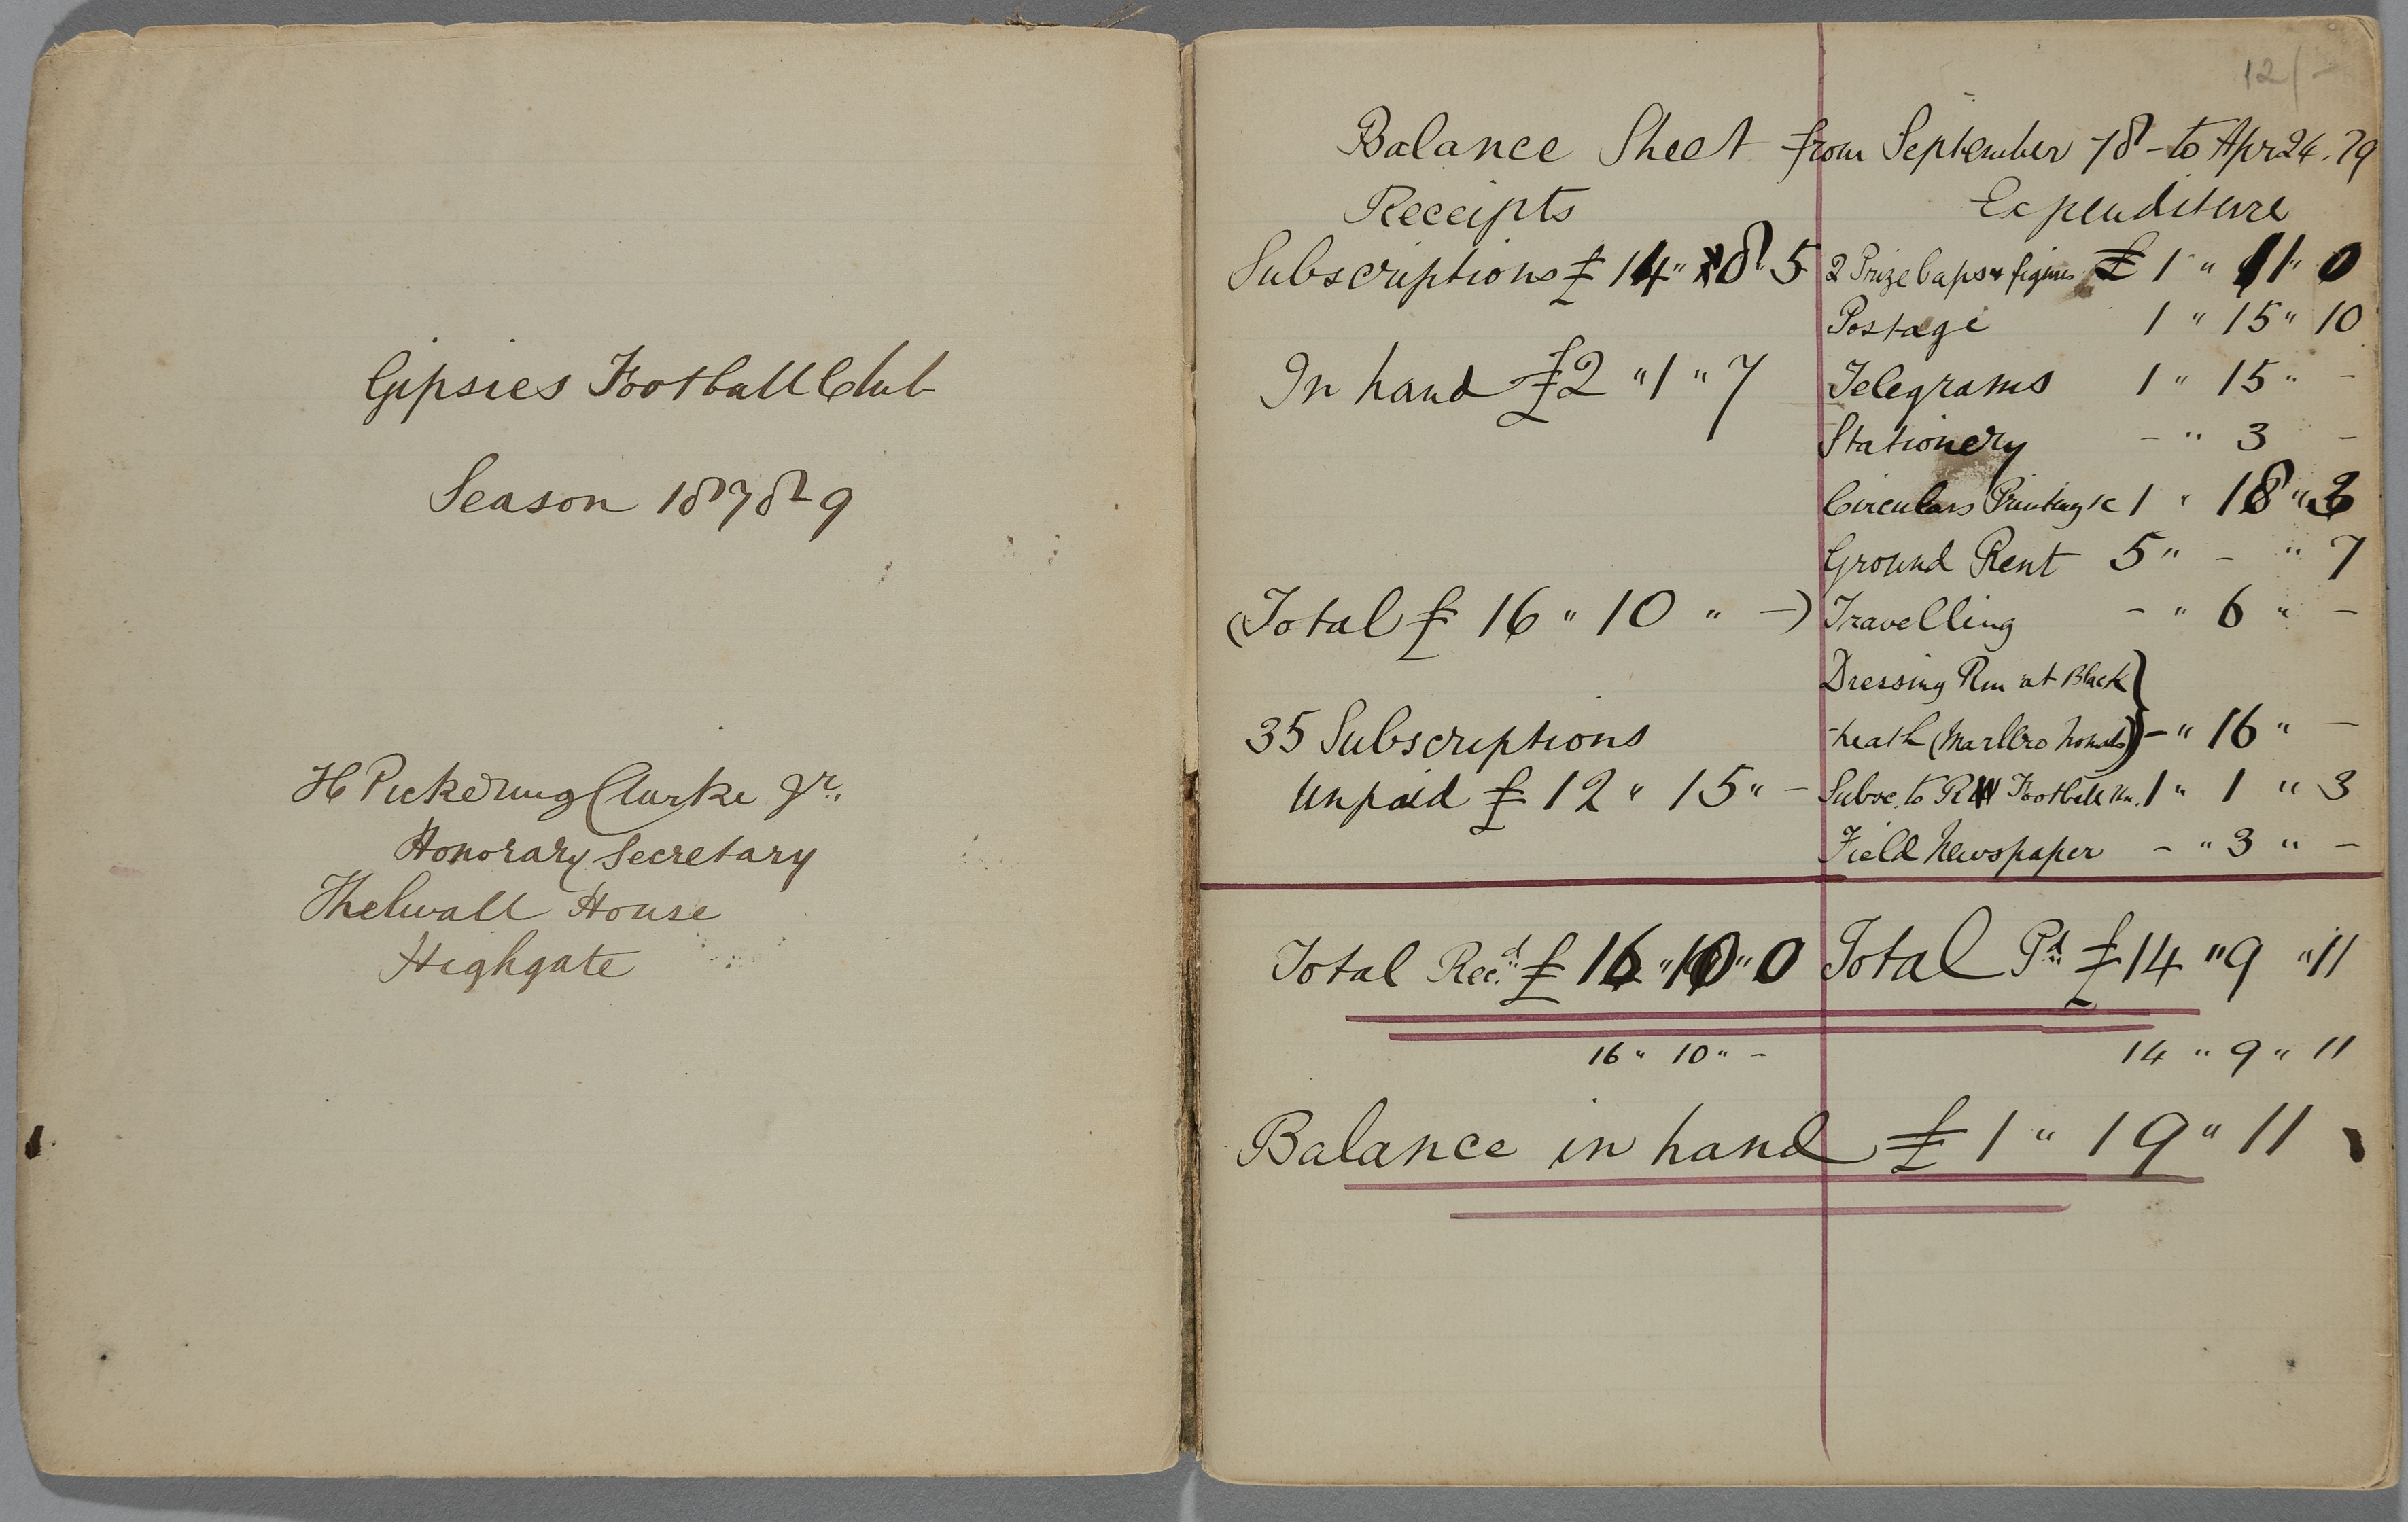 Gipsies Football Club
Season 1878-9
H Pickering Clarke Jr.
Honorary Secretary
Thelwall House
Highgate
12/-
Balance Sheet from September 78 - to Apr 24. 79
Receipts
Subscriptions £ 14 " 8 " 5
In hand £2 " 1 " 7
(Total £ 16 " 10 " -)
35 Subscriptions
Unpaid £ 12 " 15 " -
Expenditure
2 Prize Caps & figures £ 1 " 11 " 0
Postage 1 " 15 " 10
Telegrams 1 " 15 " -
Stationery - " 3 -
Circulars Printing &c 1 " 18 " 3
Ground Rent 5 " - " 7
Travelling - " 6 " -
Dressing Rm at Black
heath (Marlbro Nomads) - " 16 " -
Subsc. to R Football Un. 1 " 1 " 3
Field Newspaper - " 3 " -
Total Recd. £ 16 " 10 " 0 Total Pd. £14 " 9 " 11
16 " 10 " - 14 " 9 " 11
Balance in hand £ 1 " 19 " 11